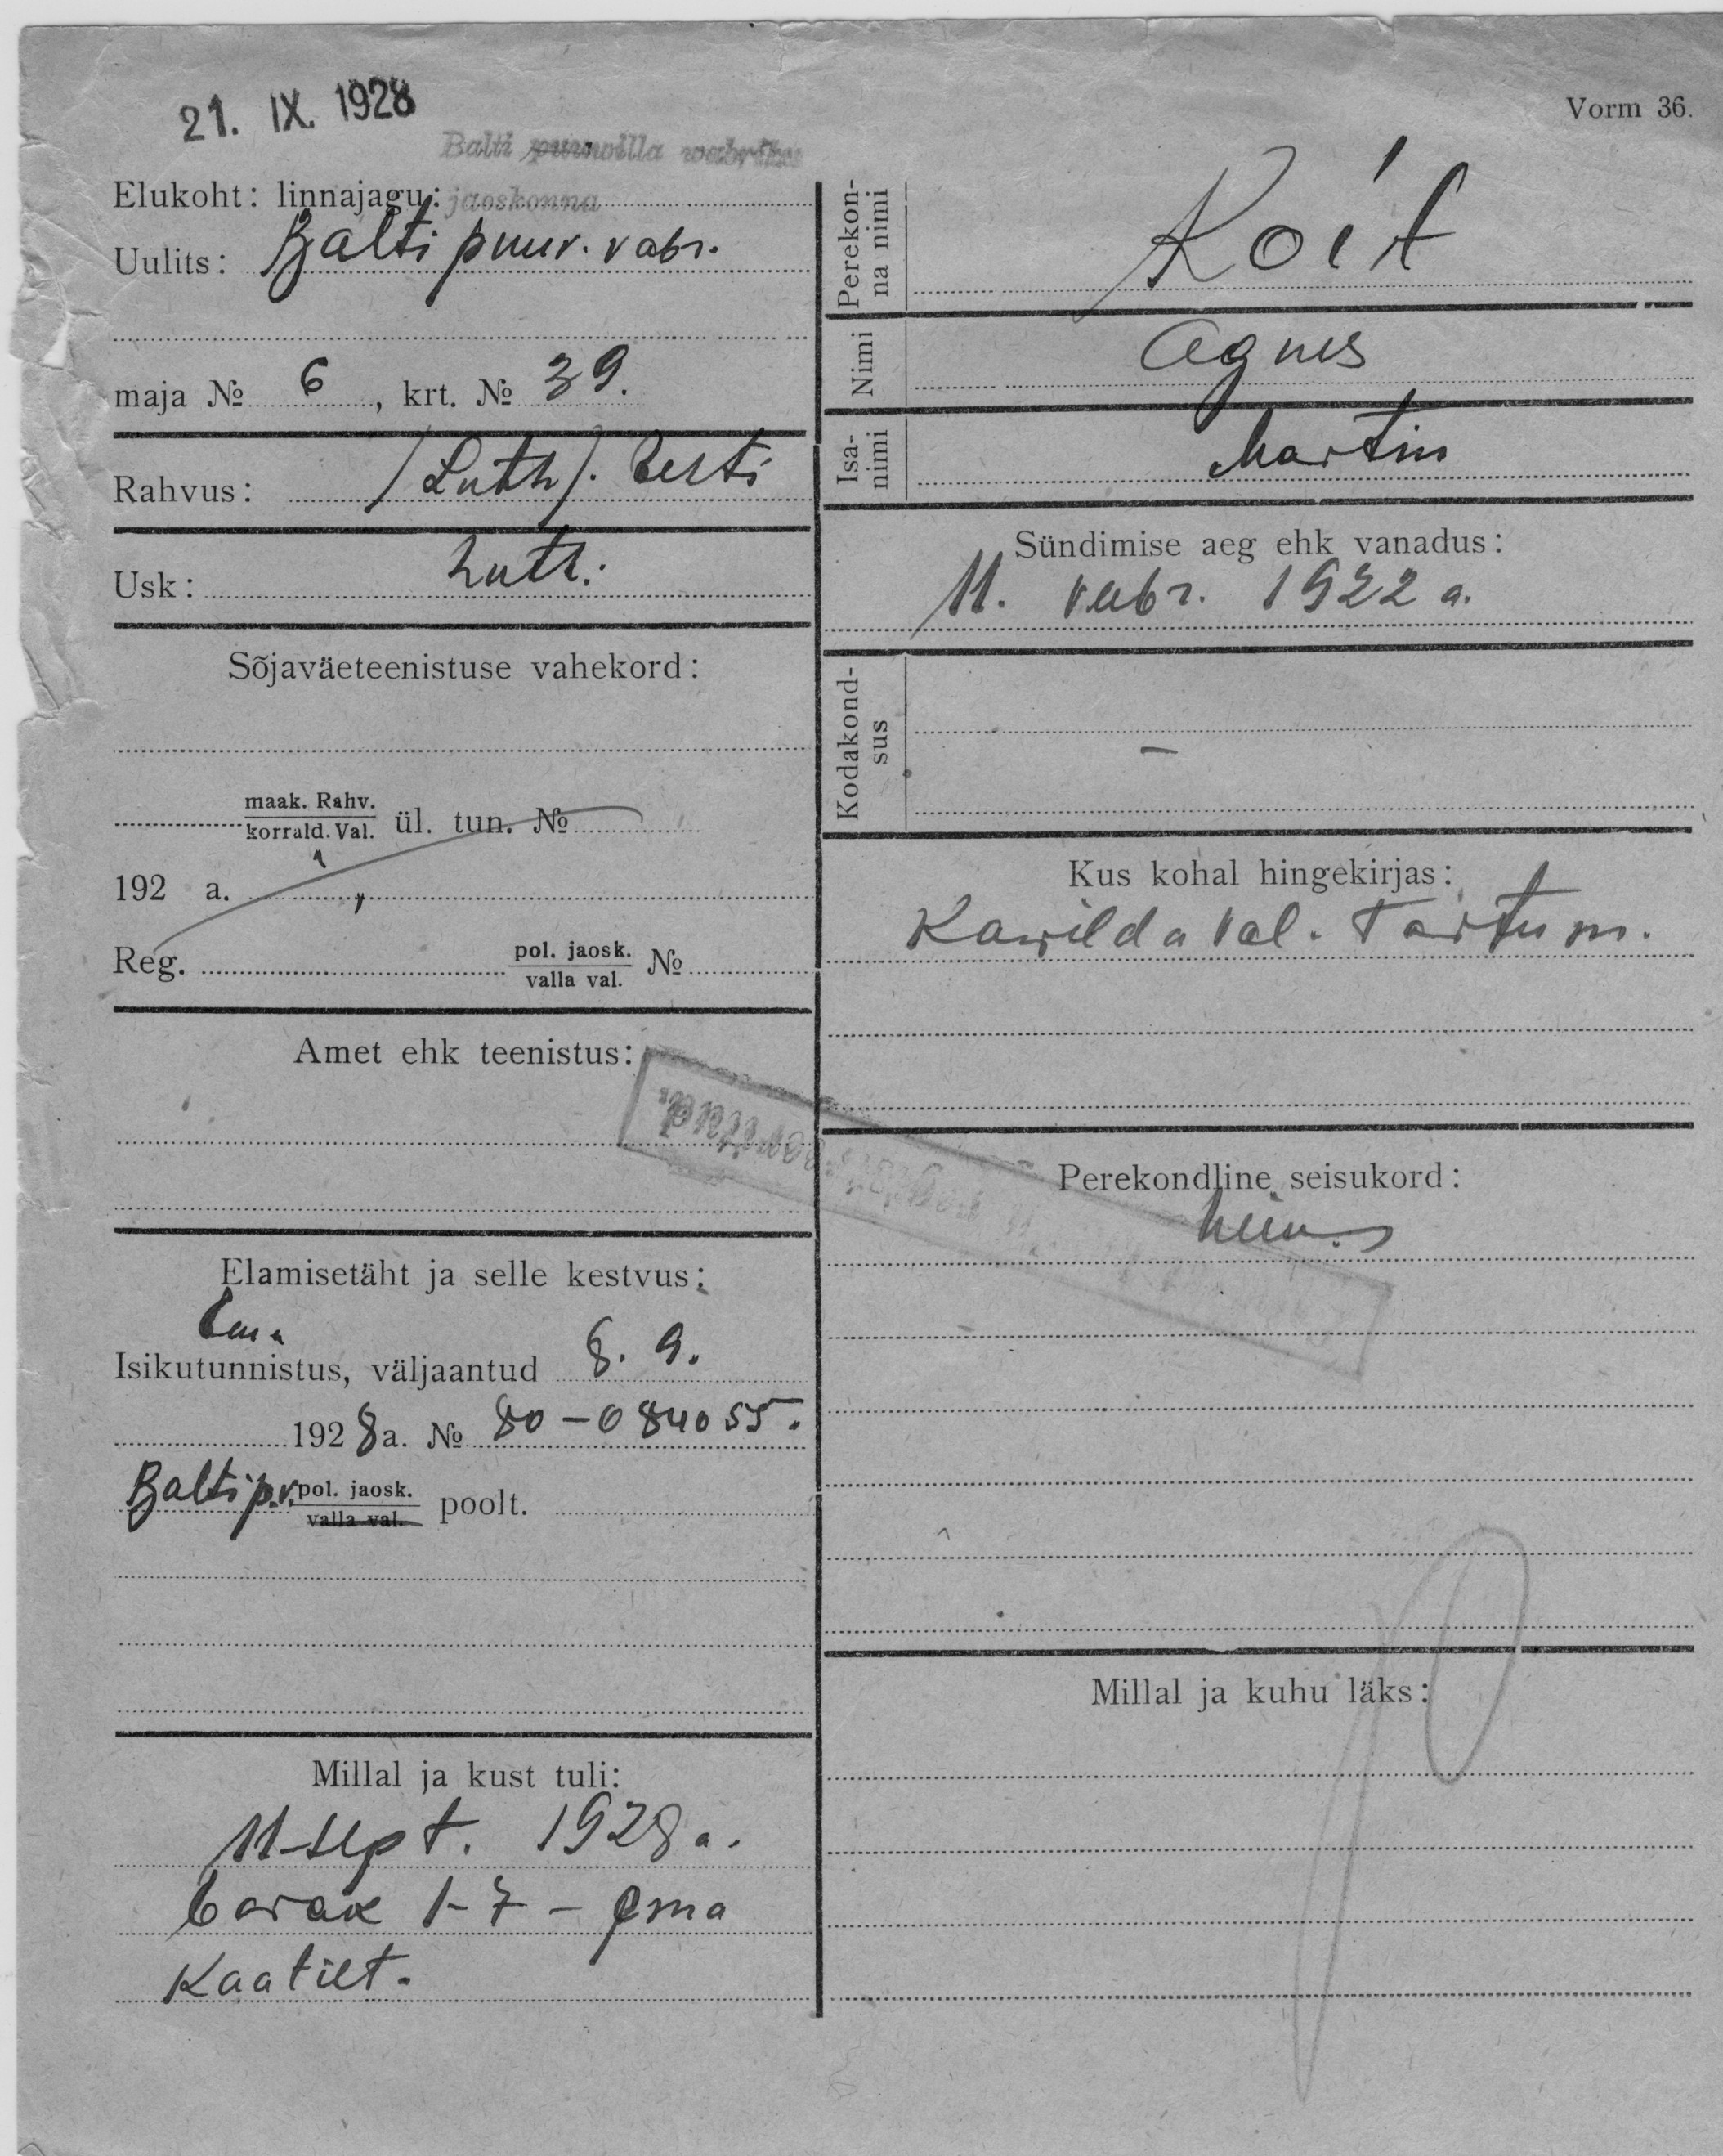 21. IX. 1928
Vorm 36.
Balti puuvilla wabriku
jaoskonna
Elukoht: linnajagu:
Uulits: Balti puuv. vabr.
maja № 6, krt. № 39.
Rahvus: (Luth). Eesti
Usk: Luth.
Sõjaväeteenistuse vahekord:
maak. Rahv.
korrald. Val. ül. tun. №
192 a.
Reg. pol. jaosk.
valla val. №
Amet ehk teenistus:
Elamisetäht ja selle kestvus:
Ema
Isikutunnistus, väljaantud 8. 9.
1928 a. № 80-084055.
Balti p.v. pol. jaosk.
valla val. poolt.
Millal ja kust tuli:
11 sept. 1928 a.
barak 1-7 - Ema
Perekonna nimi
Koit
Nimi
Agnes
Isanimi
Martin
Sündimise aeg ehk vanadus:
11. veebr. 1922 a.
Kodakondsus
–
Kus kohal hingekirjas:
Kawilda val. Tartu m.
Perekondline seisukord:
Millal ja kuhu läks: